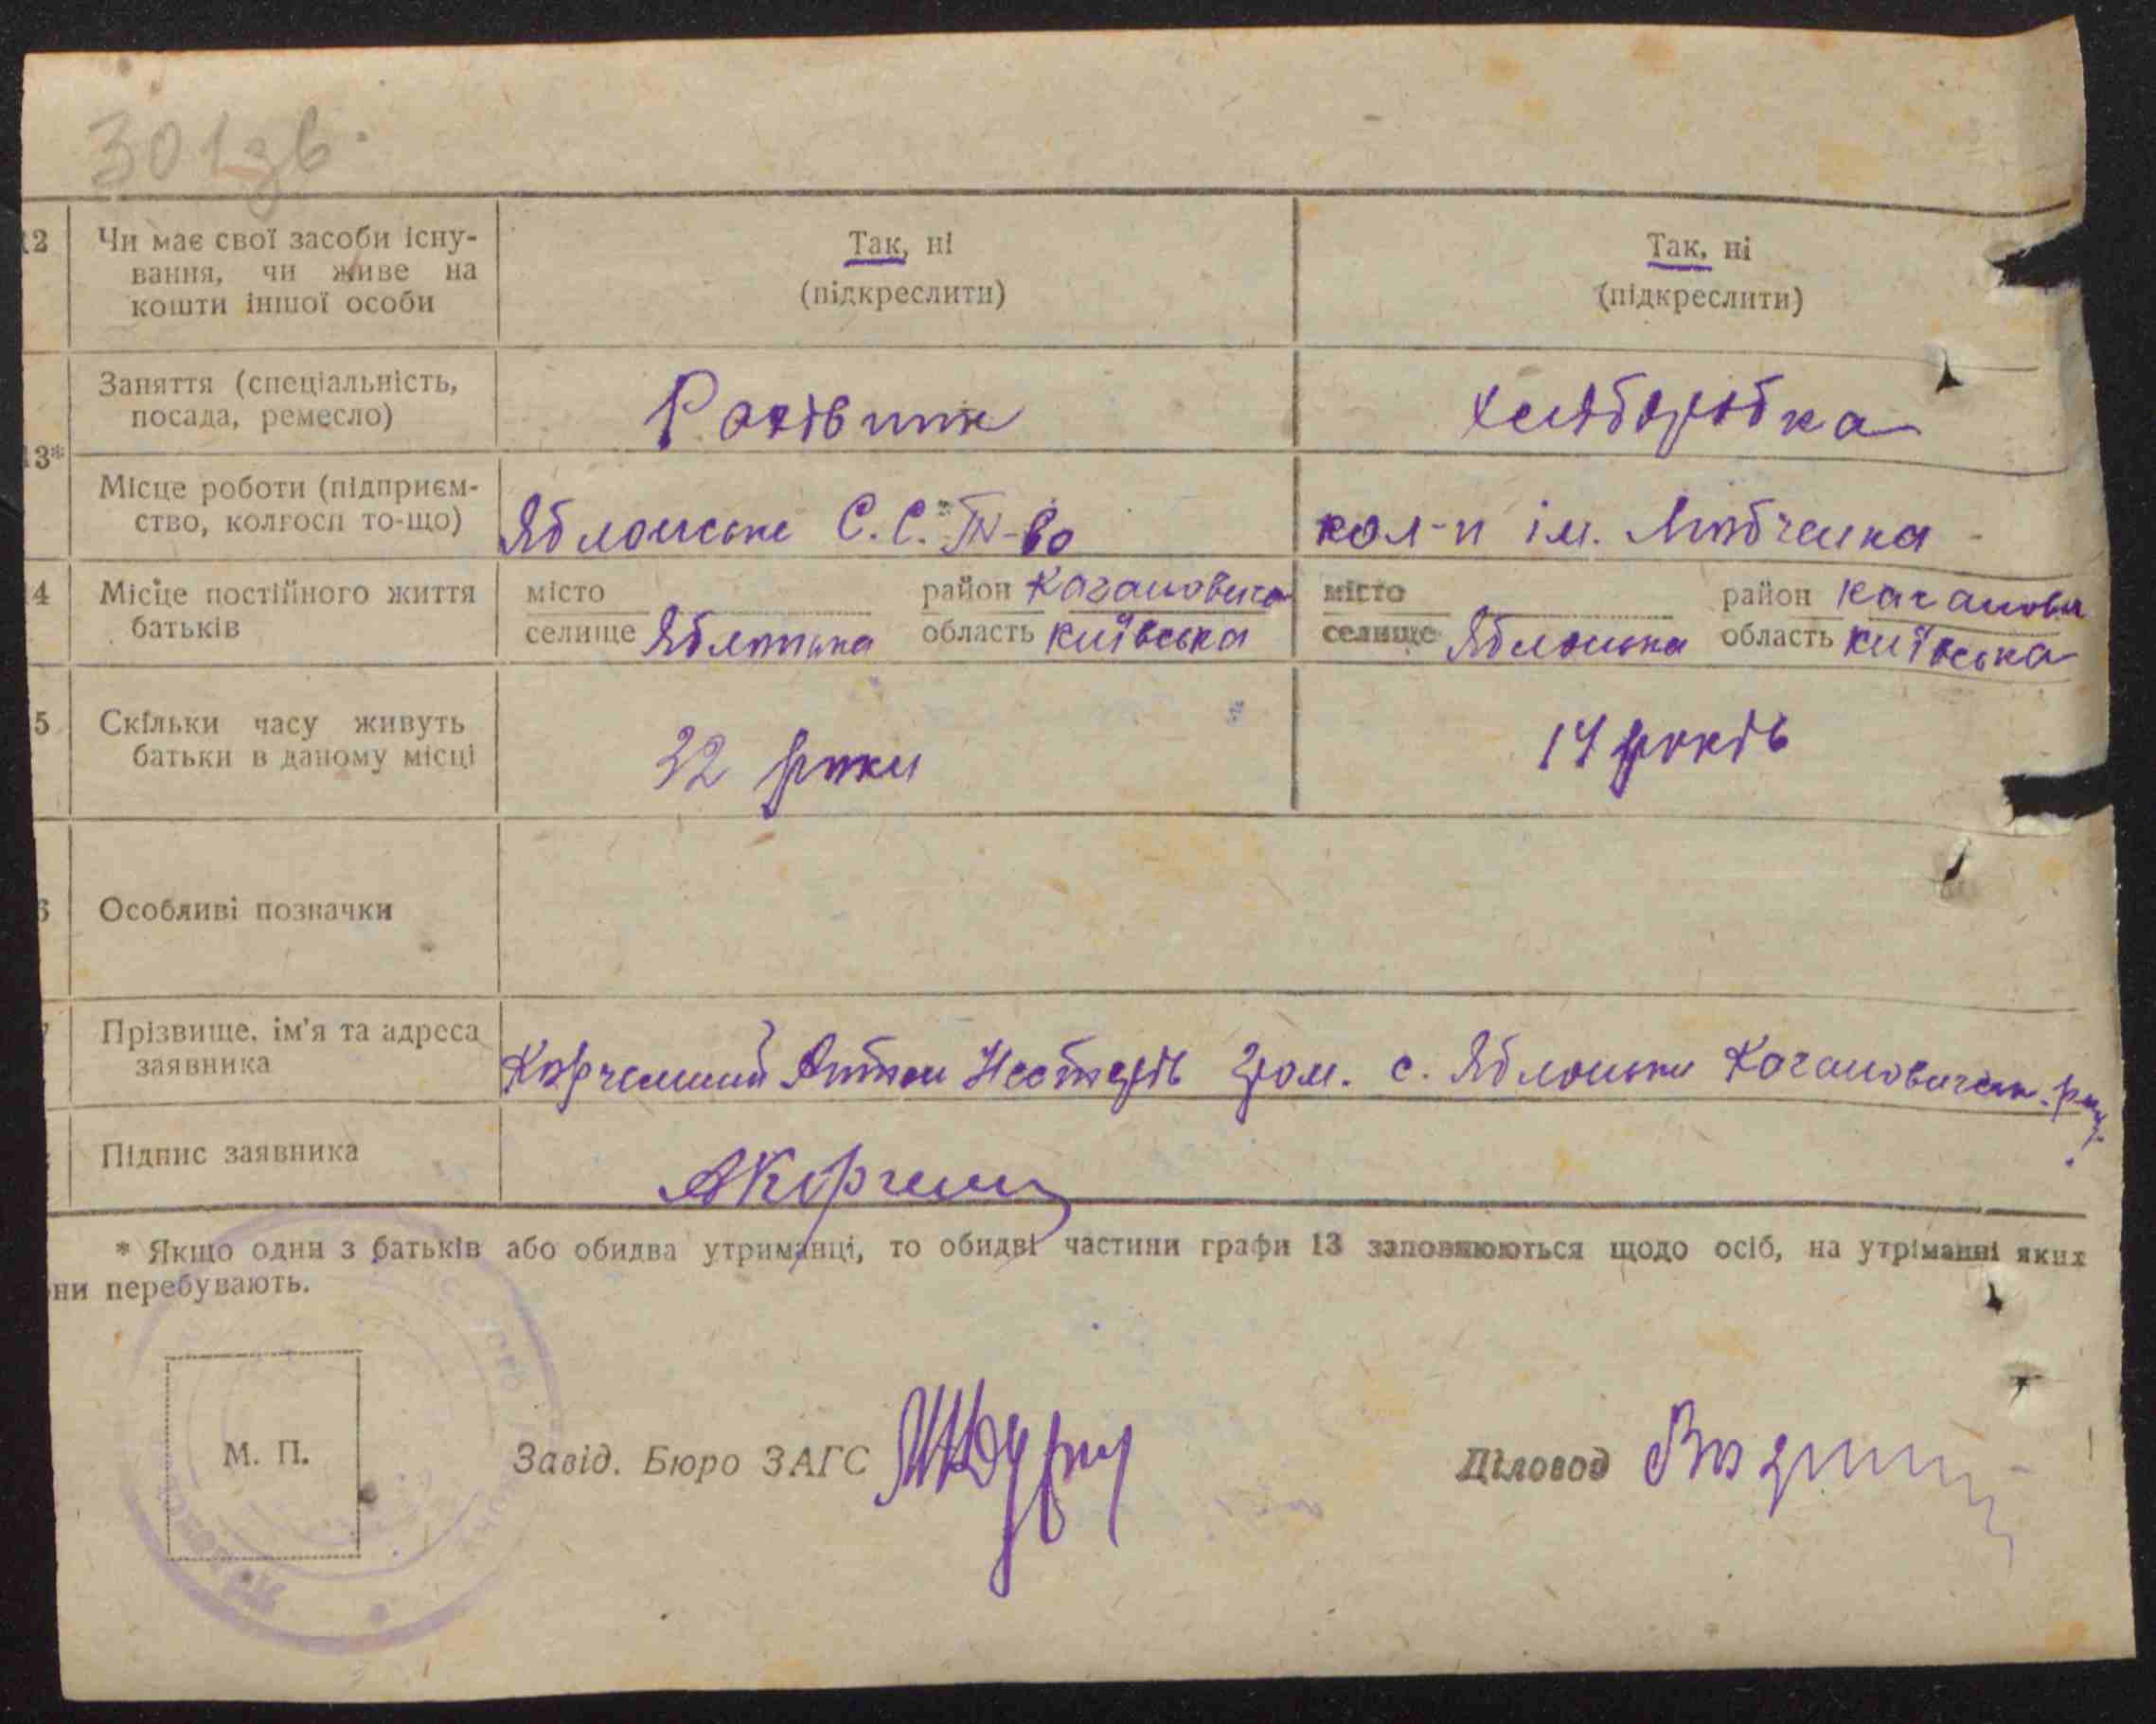 301зв.
12 Чи має свої засоби існу-
вання, чи живе на
кошти іншої особи
Так, ні
(підкреслити)
Так, ні
(підкреслити)
13*
Заняття (спеціальність,
посада, ремесло)
хліборобка
Місце роботи (підприєм-
ство, колгосп то-що)
С.С. Т-во
кол-п ім. Любченка
14 Місце постійного життя
батьків
місто
селище Яблонька
район Кагановича
область Київська
місто
селище Яблонька
район Каганови
область Київська
5 Скільки часу живуть
батьки в даному місці
32 роки
17 років
6 Особливі позначки
7 Прізвище, ім'я та адреса
заявника
Корчемний Антон Нестерів гром. с. Яблоньки Кагановичськ. рну.
Підпис заявника
АКорчемн
* Якщо один з батьків або обидва утриманці, то обидві частини графи 13 заповнюються щодо осіб, на утріманні яких
ни перебувають.
М. П.
Завід. Бюро ЗАГС
Діловод